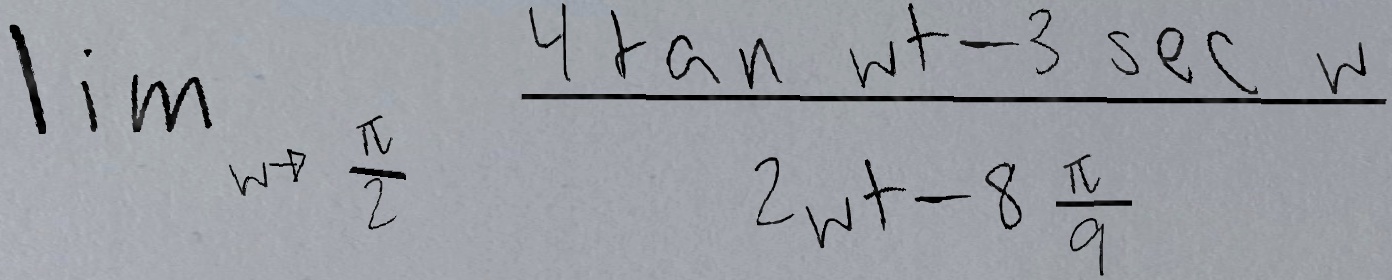 \lim_{w \to \frac{\pi}{2}} \frac{4 \tan w + -3 \sec w}{2w + -8 \frac{\pi}{9}}